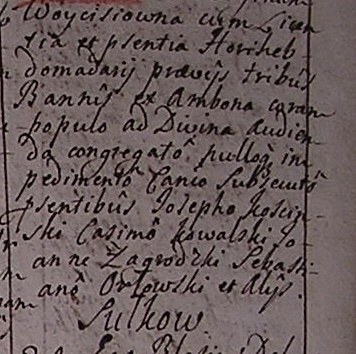 Woycisiowna cum Licen
tia et psentia Horiheb
domadarij prævijs tribus
Bannis ex Ambona coram
populo ad Divina audien
da congregatô nulloq̃ im
pedimentô Canco Subsecutô
psentibus Iosepho Koscin
ski Casimô Kowalski Io
anne Zagrodzki Sebasti
anô Orłowski et alijs.
Sulkow.